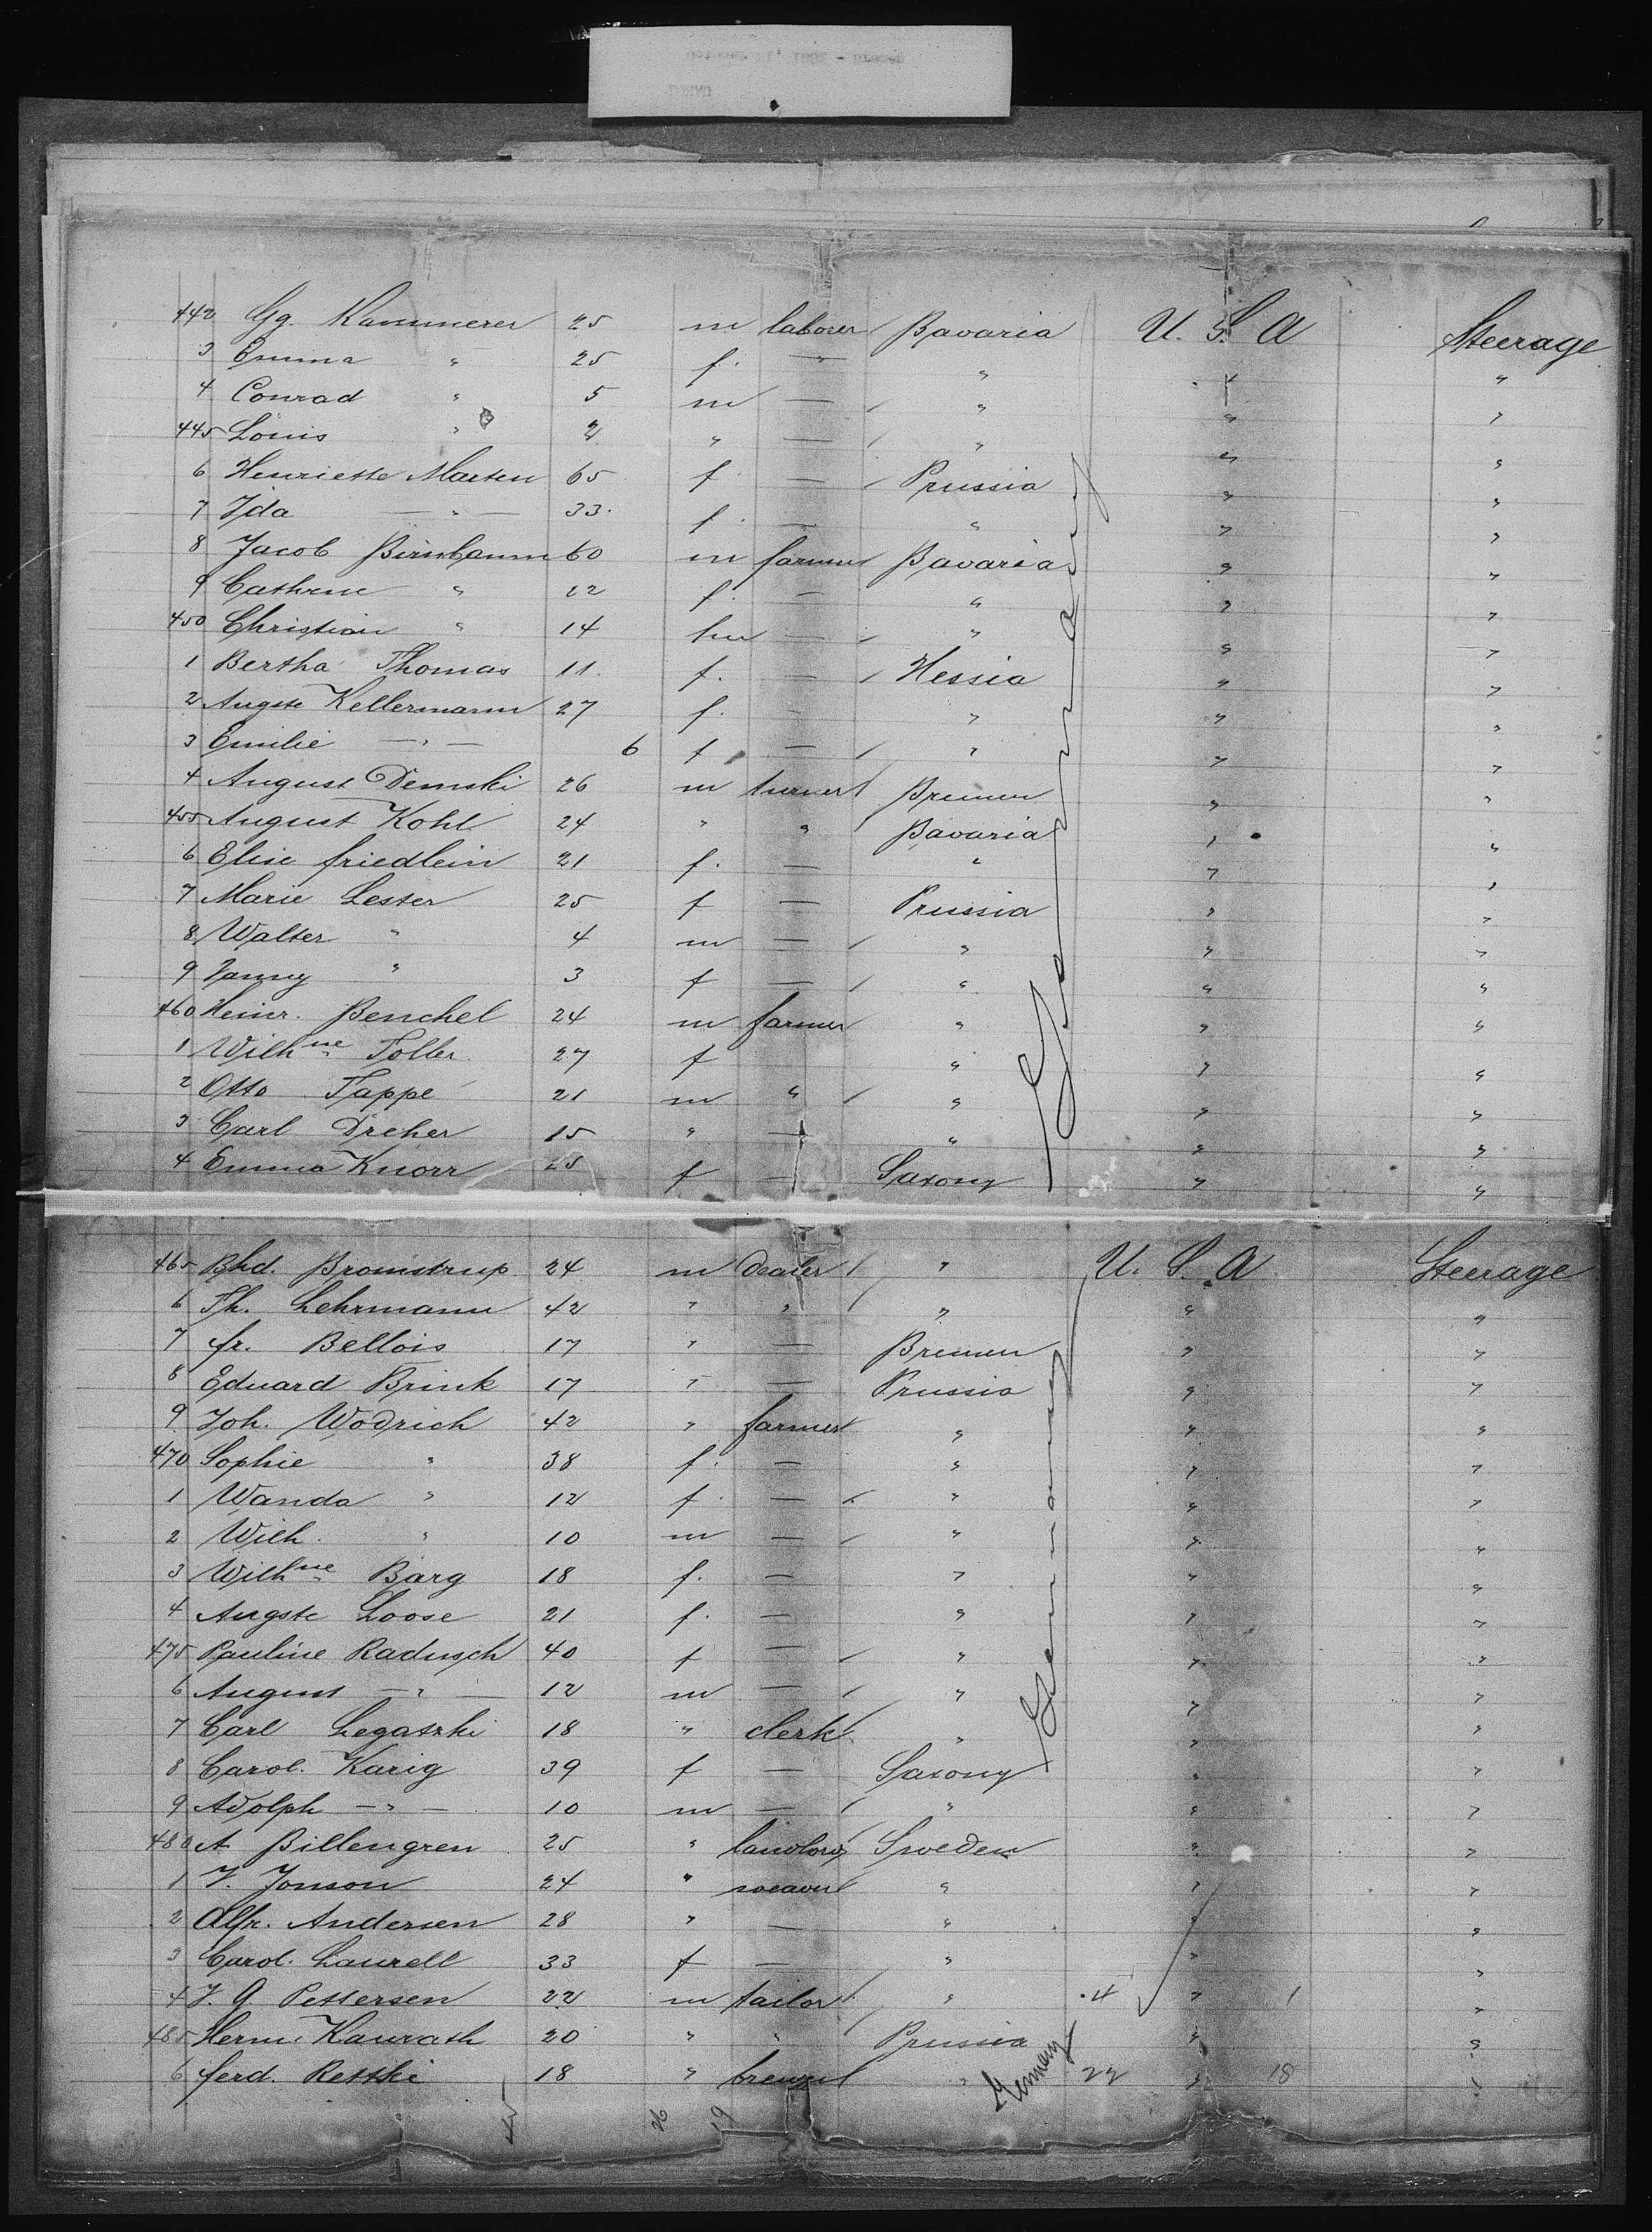 442 Gg. Kammerer 25 m laborer Bavaria U. S. A Steerage
3 Emma " 25 f. — " " "
4 Conrad " 5 m — " " "
445 Louis " 2 " — " " "
6 Henriette Marten 65 f — Prussia " "
7 Ida — " — 33. f. — " " "
8 Jacob Birnbaum 60 m farmer Bavaria " "
9 Cathrine " 22 f. — " " "
450 Christian " 14 m — " " "
1 Bertha Thomas 11. f. — Hessia " "
2 Augste Kellermann 27 f. — " " "
3 Emilie — " — 6 f — " " "
4 August Demski 26 m turner Bremen " "
455 August Kohl 24 " " Bavaria " "
6 Elise friedlein 21 f. — " " "
7 Marie Lester 25 f — Prussia " "
8 Walter " 4 m — " " "
9 Fanny " 3 f — " " "
460 Heinr. Benchel 24 m farmer " " "
1 Wilhne Toller. 27 f " " "
2 Otto Tappe 21 m " " " "
3 Carl Dreher 15 " — " " "
4 Emma Knorr 25 f — Saxony " "
Germany
465 Bhd. Bromstrup 24 m dealer " U. S. A Steerage
6 Th. Lehrmann 42 " " " " "
7 fr. Bellois 17 " — Bremen " "
8 Eduard Brink 17 " — Prussia " "
9 Joh. Wodrich 42 " farmer " " "
470 Sophie " 38 f. — " " "
1 Wanda " 12 f. — " " "
2 Wilh. " 10 m — " " "
3 Wilhne Barg 18 f. — " " "
4 Augste Loose 21 f. — " " "
475 Pauline Radusch 40 f — " " "
6 August — " — 12 m — " " "
7 Carl Legatzki 18 " clerk " " "
8 Carol. Karig 39 f — Saxony " "
9 Adolph — " — 10 m — " " "
Germany
480 A. Billengren 25 " landlord Sweden " "
1 V. Jonson 24 " weaver " " "
2 Alfr. Andersen 28 " — " " "
3 Carol. Laurell 33 f — " " "
4 J. G. Pettersen 22 m tailor " 4 " 1 "
485 Herm. Kanrath 20 " " Prussia " "
6 ferd. Rettki 18 " " 22 " 18 "
Germany
45 26 19